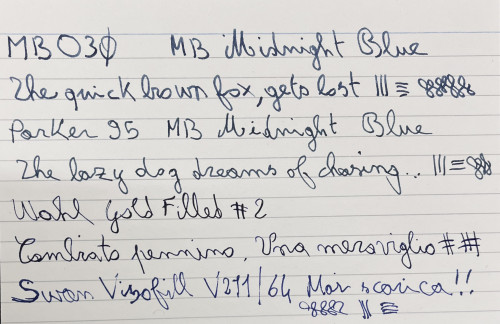 MB 030 MB Midnight Blue
The quick brown fox, gets lost
Parker 95 MB Midnight Blue
The lazy dog dreams of chasing...
Wahl Gold Filled #2
Cambiato pennino. Una meraviglia ###
Swan Visofill V271/64 Mai scarica!!